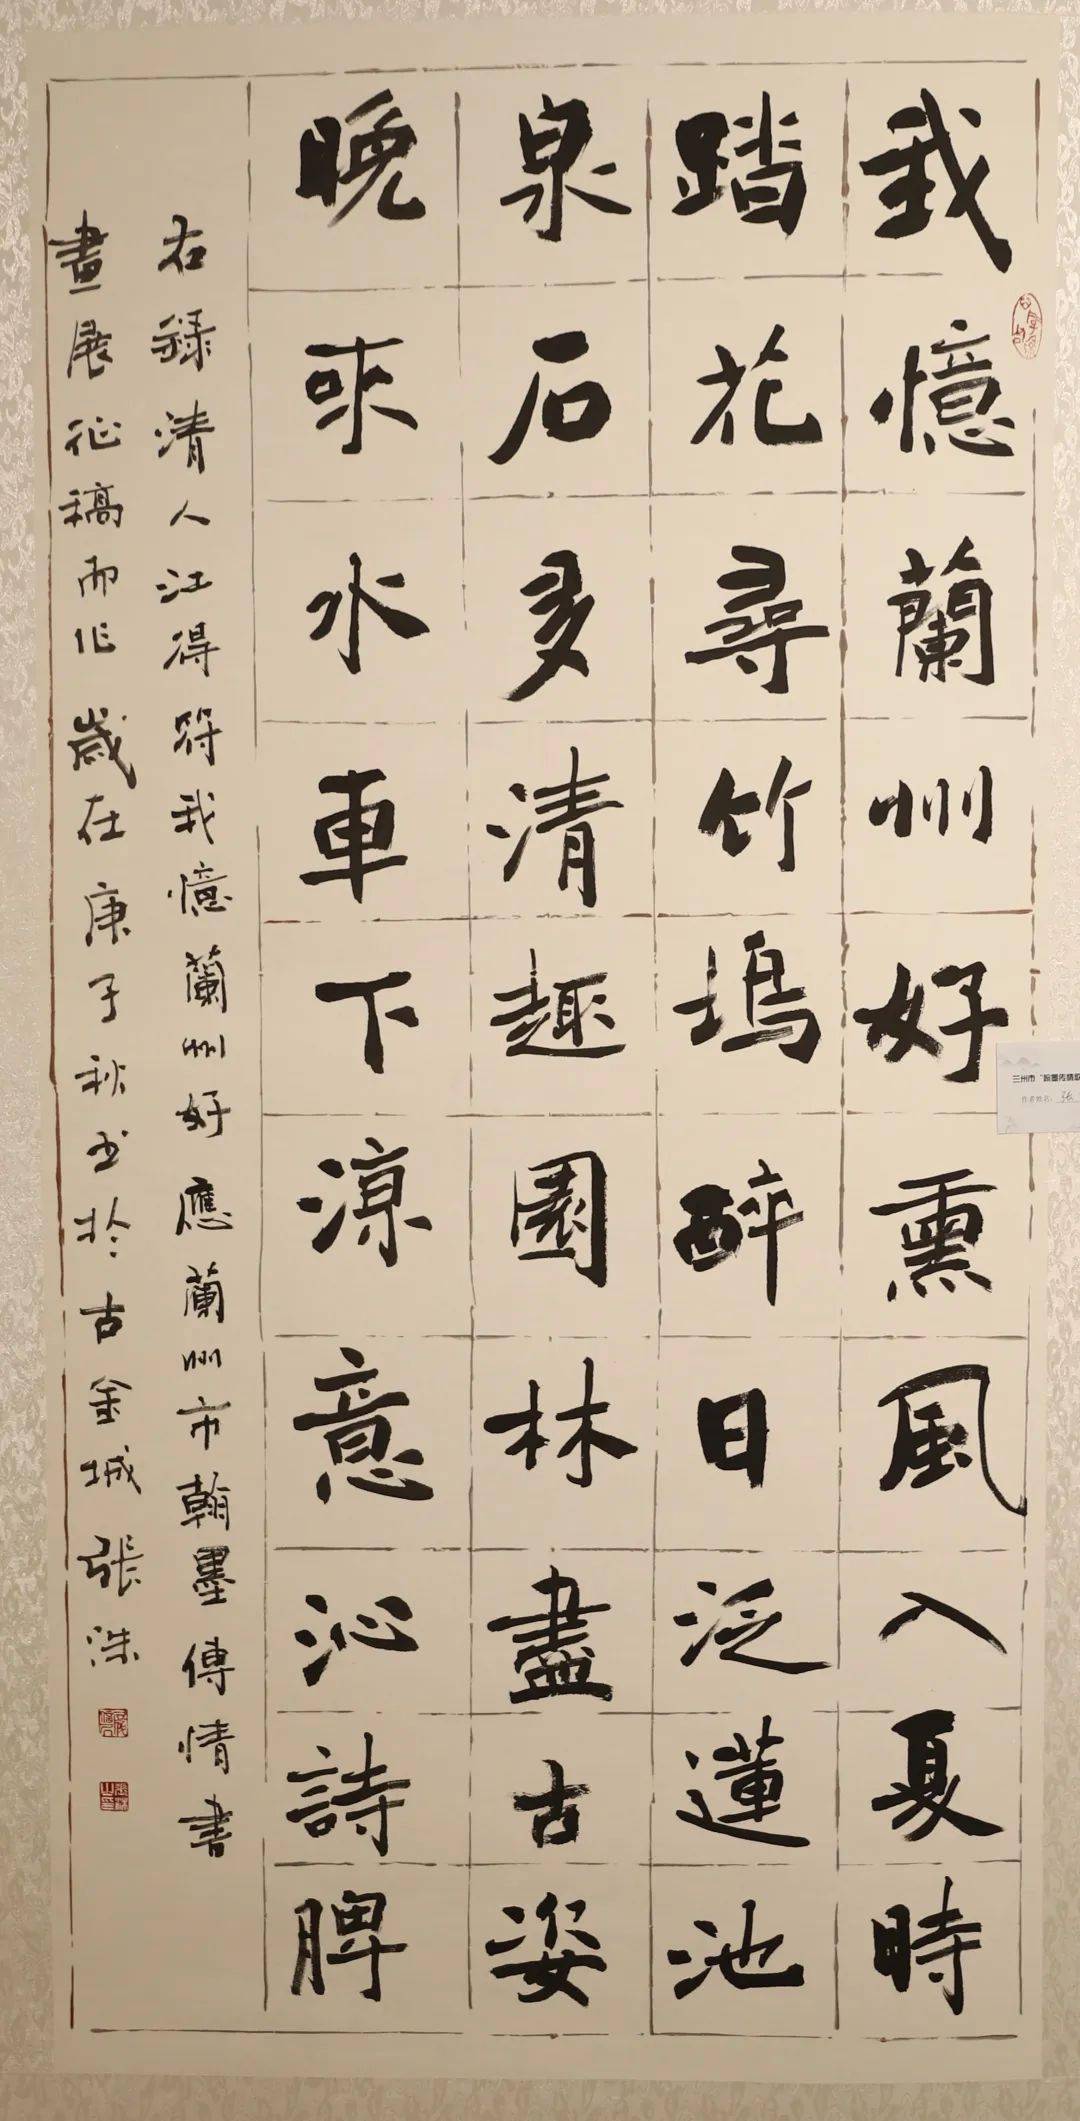 我憶蘭州好熏風入夏時
踏花尋竹塢醉日泛蓮池
泉石多清趣園林盡古姿
晚來水車下涼意沁詩脾
右錄清人江得符我憶蘭州好應蘭州市翰墨傳情書
畫展征稿而作歲在庚子秋書於古金城張洙